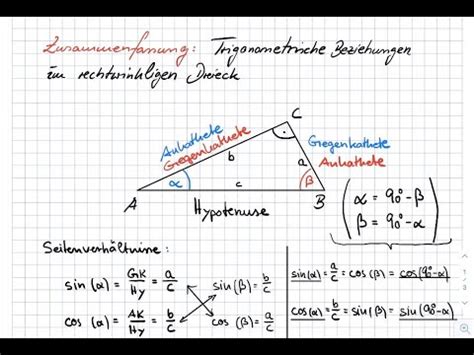 Zusammenfassung: Trigonometrische Beziehungen
im rechtwinkligen Dreieck
C
Ankathete
Gegenkathete
b
a
Gegenkathete
Ankathete
α
c
β
A
Hypotenuse
B
α = 90° - β
β = 90° - α
Seitenverhältnisse:
sin (α) = GK/Hy = a/c
sin (β) = b/c
cos (α) = AK/Hy = b/c
cos (β) = a/c
sin(α) = a/c = cos (β) = cos(90°-α)
cos(α) = b/c = sin(β) = sin(90°-α)
1
3